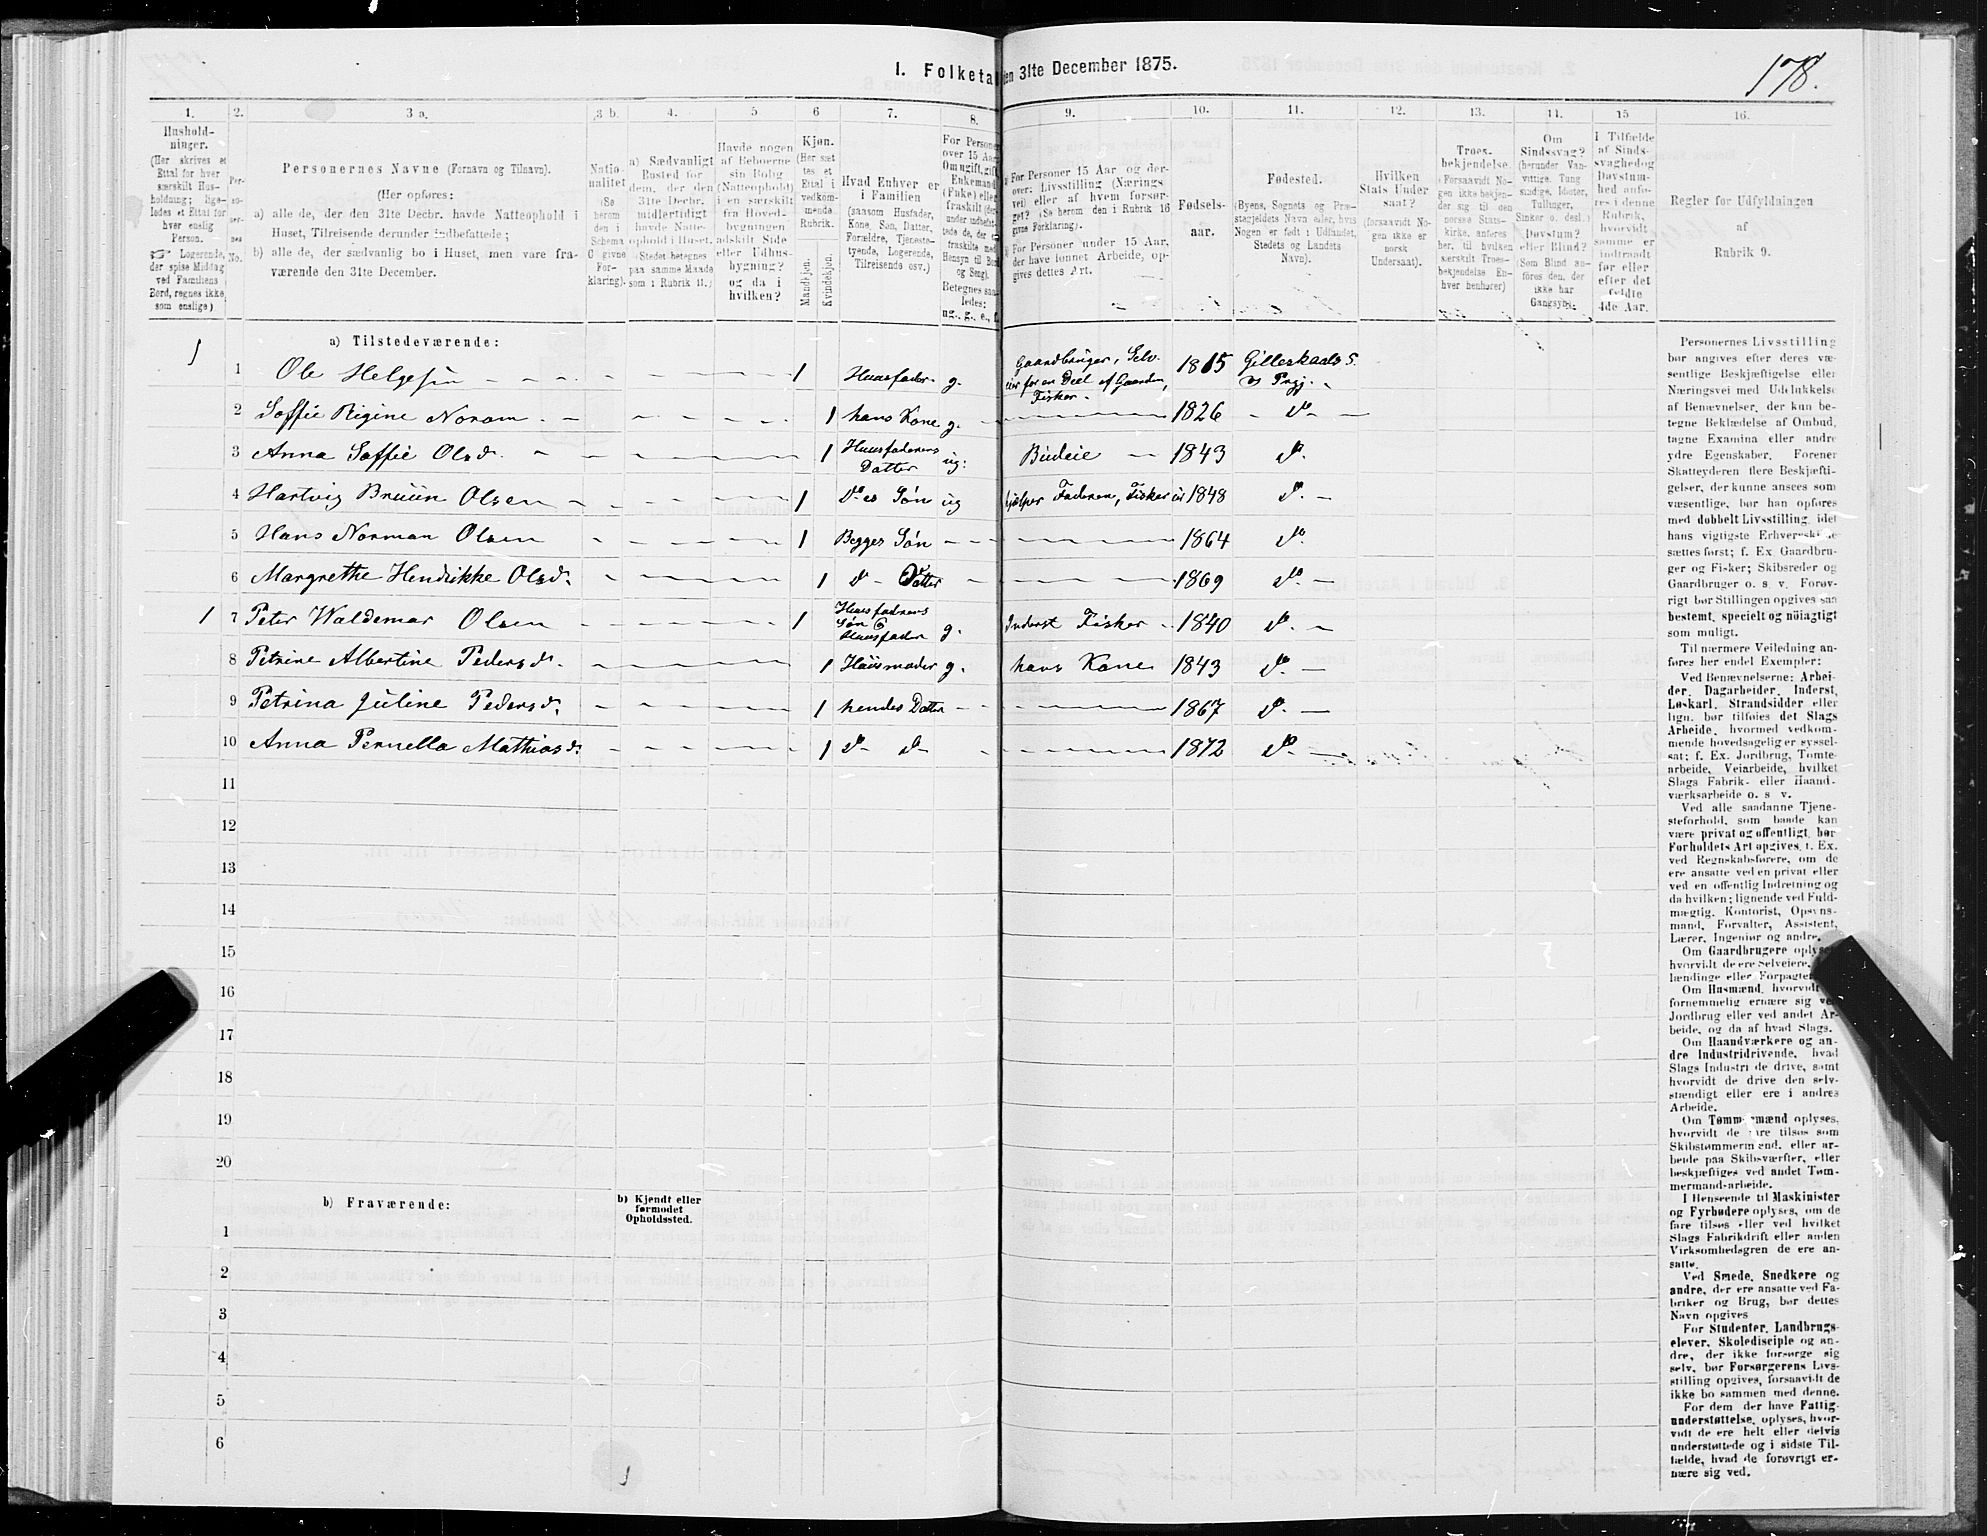 178.
I. Folketa
en 31te December 1875.
1.
2.
3 a.
3 b.
4.
5
6
7.
8.
9.
10.
11.
12.
13.
14.
15
16.
Hushold-
ninger.
(Her skrives et
Ettal for hver
særskilt Hus-
holdning; lige-
ledes et Ettal for
hver enslig
Person.
Logerende,
der spise Middag
ved Familiens
Bord, regnes ikke
som enslige)
Per-
so-
ner-
nes
No.
Personernes Navne (Fornavn og Tilnavn).
(Her opføres:
a) alle de, der den 31te Decbr. havde Natteophold i
Huset, Tilreisende derunder indbefattede;
b) alle de, der sædvanlig bo i Huset, men vare fra-
værende den 31te December.
Natio-
nalitet
(Se
herom
den i
Schema
0 givne
For-
klaring).
a) Sædvanligt
Bosted for
dem, der den
31te Decbr.
midlertidigt
havde Natte-
ophold i Huset.
(Stedet betegnes
paa samme Maade
som i Rubrik 11.)
Havde nogen
af Beboerne
sin Bolig
(Natteophold)
i en særskilt
fra Hoved-
bygningen
adskilt Side
eller Udhus-
bygning?
og da i
hvilken?
Kjøn.
(Her sæt
tes et
Ettal i
vedkom-
mende
Rubrik.
Mandkjøn.
Kvindekjøn.
Hvad Enhver er
i Familien
(saasom Husfader,
Kone, Søn, Datter,
Forældre, Tjeneste-
tyende, Logerende,
Tilreisende osv.)
For Persone
over 15 Aar
Om ugift, gift
Enkemand
(Fuke) eller
fraskilt (der-
under indbefat-
tede de, der e
fraskilte med
Hensyn til Bo
og Seng).
Betegnes saa
ledes:
ug., g., e., f.
For Personer 15 Aar og der-
over: Livsstilling (Nærings
vei) eller af hvem forsør-
get? (Se herom den i Rubrik 16
givne Forklaring).
For Personer under 15 Aar,
der have lønnet Arbeide, op-
gives dettes Art.
Fødsels-
aar.
Fødested.
(Byens, Sognets og Præ-
stegjeldets Navn eller, hvis
Nogen er født i Udlandet,
Stedets og Landets
Navn).
Hvilken
Stats Under
saat?
(forsaavidt No-
gen ikke er
norsk
Undersaat).
Troes-
bekjendelse
(Forsaavidt No-
gen ikke bekjen-
der sig til den
norske Stats-
kirke, anføres
her, til hvilken
særskilt Troes-
bekjendelse En-
hver henhører)
Om
Sindssvag?
(herunder Van-
vittige, Tung
sindige, Idioter,
Tullinger,
Sinker o. desl.)
Døvstum?
eller Blind?
(Som Blind an-
føres den, der
ikke har
Gangsyn).
I Tilfælde
af Sinds-
svaghed og
Døvstum-
hed anfø-
res i denne
Rubrik,
hvorvidt
samme er
indtraadt
før eller
efter det
fyldte
4de Aar.
Regler for Udfyldningen
af
Rubrik 9.
a) Tilstedeværende:
1 1 Ole Helgesen 1 Huusfader g. Gaardbruger, Selv-eier for en Deel af Gaarden, Fisker 1815 Gilleskaals S. og Prgj.
2 Soffie Rigine Norom 1 hans Kone g. 1826 do
3 Anna Soffie Olsd. 1 Huusfaderens Datter ug. Budeie 1843 do
4 Hartvig Bruun Olsen 1 do es Søn ug hjelper Faderen, Fisker 1848 do
5 Hans Norman Olsen 1 Begges Søn 1864 do
6 Margrethe Hendrikke Olsd. 1 do Datter 1869 do
1 7 Peter Waldemar Olsen 1 Huusfaderens Søn & Huusfader g. Inderst Fisker 1840 do
8 Petrine Albertine Pedersd. 1 Huusmoder g. hans Kone 1843 do
9 Petrina Juline Pedersd. 1 hendes Datter 1867 do
10 Anna Pernella Mathiasd. 1 do do 1872 do
11
12
13
14
15
16
17
18
19
20
b) Fraværende:
b) Kjendt eller
formodet
Opholdssted.
1
2
3
4
5
6
Personernes Livsstilling
bør angives efter deres væ-
sentlige Beskjæftigelse eller
Næringsvei med Udelukkelse
af Benævnelser, der kun be-
tegne Beklædelse af Ombud,
tagne Examina eller andre
ydre Egenskaber. Forener
Skatteyderen flere Beskjæfti-
gelser, der kunne ansees som
væsentlige, bør han opføres
med dobbelt Livsstilling, idet
hans vigtigste Erhvervskilde
sættes først; f. Ex Gaardbru-
ger og Fisker; Skibsreder og
Gaardbruger o. s. v. Forøv-
rigt bør Stillingen opgives saa
bestemt, specielt og nöiagtigt
som muligt.
Til nærmere Veiledning an-
føres her endel Exempler:
Ved Benævnelserne: Arbei-
der, Dagarbeider, Inderst,
Løskarl, Strandsidder eller
lign. bør tilføies det Slags
Arbeide, hvormed vedkom-
mende hovedsagelig er syssel-
sat; f. Ex. Jordbrug, Tomte-
arbeide, Veiarbeide, hvilket
Slags Fabrik- eller Haand-
værksarbeide o. s v.
Ved alle saadanne Tjene-
steforhold, som baade kan
være privat og offentligt, bør
Forholdets Art opgives, f. Ex.
ved Regnskabsførere, om de
ere ansatte ved en privat eller
ved en offentlig Indretning og
da hvilken; lignende ved Fuld-
mægtig, Kontorist, Opsyns-
mand, Forvalter, Assistent,
Lærer, Ingeniør og andre.
Om Gaardbrugere oplyses,
hvorvidt de ere Selveiere,
lændinge eller Forpagtere.
Om Husmænd, hvorvidt
fornemmelig ernære sig ved
Jordbrug eller ved andet Ar-
beide, og da af hvad Slags.
Om Haandværkere og an-
dre Industridrivende, hvad
Slags Industri de drive, samt
hvorvidt de drive den selv-
stændigt eller ere i andres
Arbeide.
Om Tømmermænd oplyses,
hvorvidt de fare tilsøs som
Skibstømmermænd, eller ar-
beide paa Skibsværfter, eller
beskjæftiges ved andet Tøm-
mermand-arbeide.
I Henseende til Maskinister
og Fyrbødere oplyses, om de
fare tilsøs eller ved hvilket
Slags Fabrikdrift eller anden
Virksomhedsgren de ere an-
satte.
Ved Smede, Snedkere og
andre, der ere ansatte ved Fa-
briker og Brug, bør dettes
Navn opgives
For Studenter, Landbrugs-
elever, Skoledisciple og an-
dre, der ikke forsørge sig
selv, bør Forsørgerens Livs-
stilling opgives, forsaavidt de
ikke bo sammen med denne.
For dem der have Fattig-
understøttelse, oplyses, hvor-
vidt de ere helt eller delvis
understøttede og i sidste Til-
fælde, hvad de forøvrigt er-
nære sig ved.